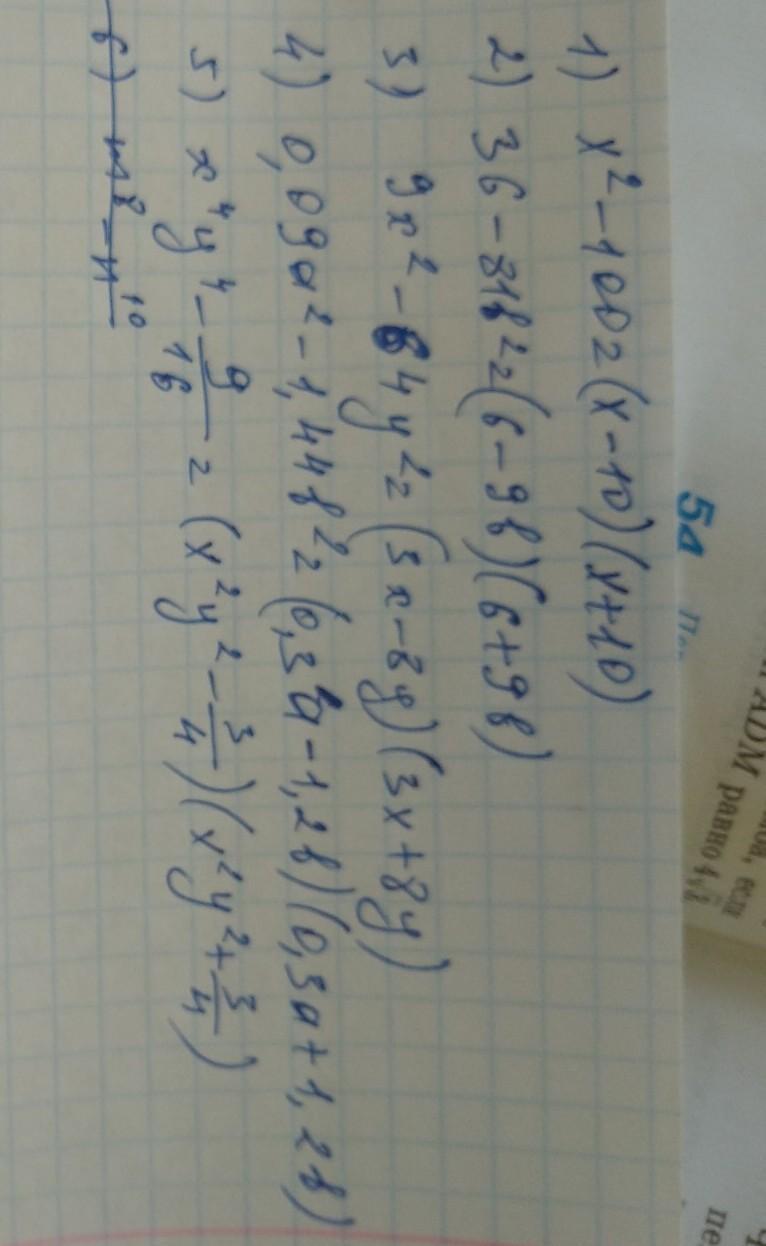 1) x²-100=(x-10)(x+10)
2) 36-81b²=(6-9b)(6+9b)
3) 9x²-64y²=(3x-8y)(3x+8y)
4) 0,09a²-1,44b²=(0,3a-1,2b)(0,3a+1,2b)
5) x⁴y⁴-9/16=(x²y²-3/4)(x²y²+3/4)
6) m⁸-n¹⁰
5а
ADM равно 4
если